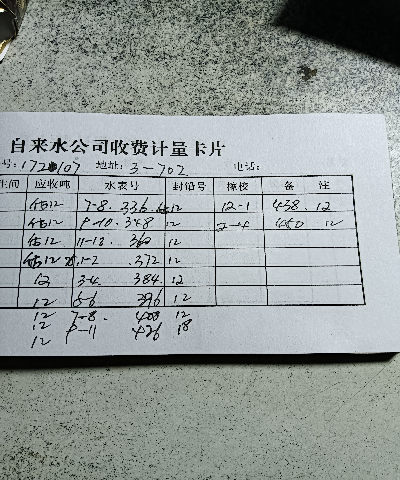 自来水公司收费计量卡片
号: 172 107 地址: 3-702 电话:
应收吨 水表号 封铅号 换校 备 注
12 7-8. 336. 12 12-1 438. 12
12 9-10. 348 12 2-4 450 12
12 11-12. 360 12
12 1-2 .372 12
12 3-4. 384. 12
12 5-6 396 12
12 7-8. 408 12
12 9-11 426 18
12